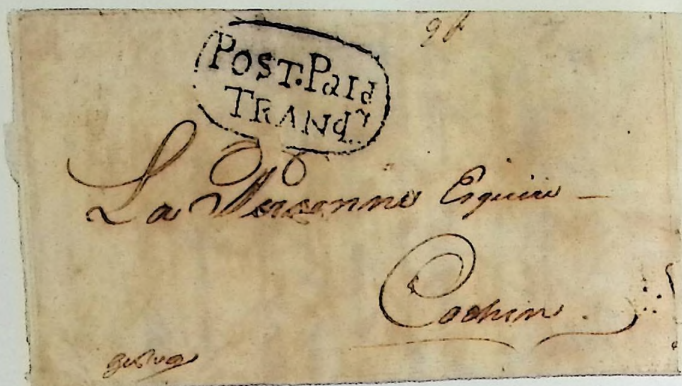 POST.PaId
TRANQr
La Personne Esquire
Cochin.